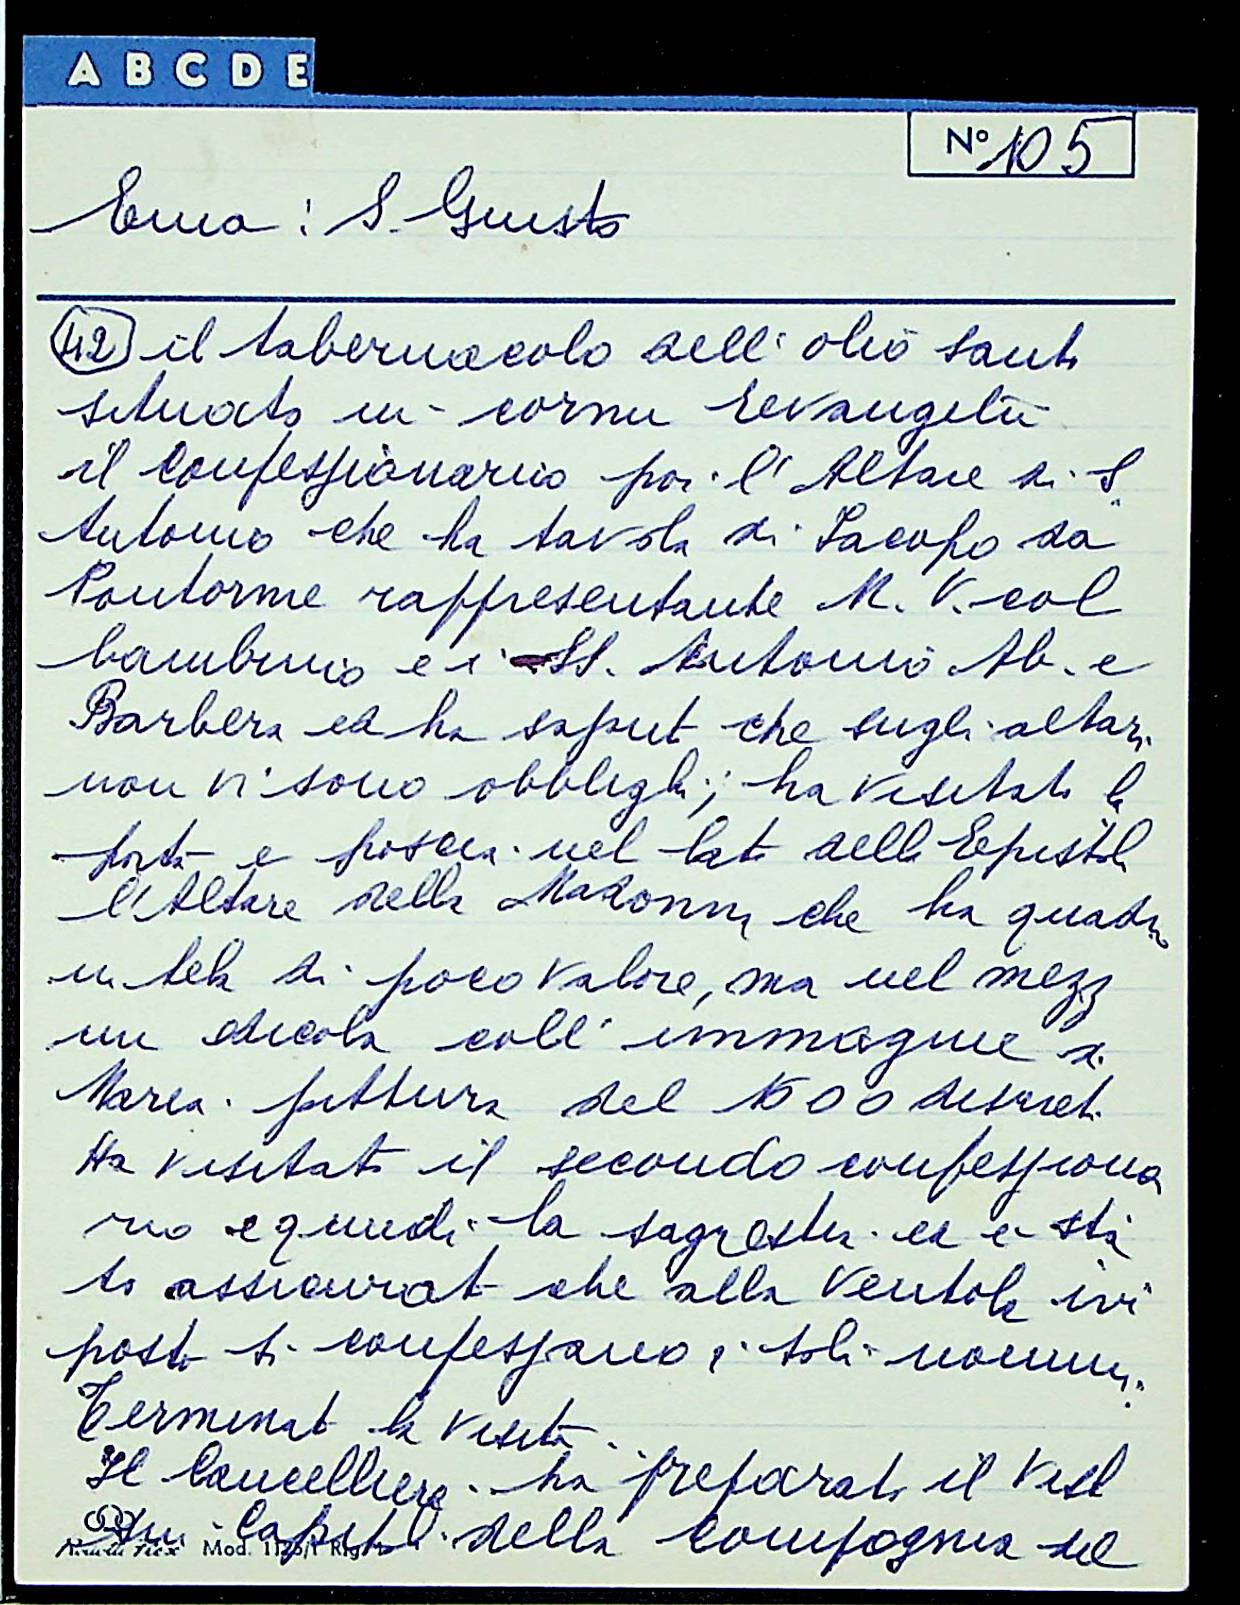 A B C D E
Nº 105
Ema : S. Giusto
42 il tabernacolo dell' olio santo
situato in cornu Evangelii
il confessionario poi l' Altare di S.
Antonio che ha tavola di Jacopo da
Pontorme rappresentante M. V. col
bambino e i SS. Antonio Ab. e
Barbera ed ha saput che sugli altari
non vi sono obblighi; ha visitato la
porta e poscia nel lato della Epistola
l'Altare della Madonna che ha quadro
in tela di poco valore, ma nel mezzo
un edicola coll' immagine di
Maria pittura del 1500 discret.
Ha visitato il secondo confessiona
rio e quindi la sagrestia ed è sta
to assicurat che alla ventola ivi
posta si confessano i soli uomini.
Terminat la visita.
Il Cancelliere ha preparato il Vist
Capitoli della Compagnia del
Mod. 1125/1 Rig.